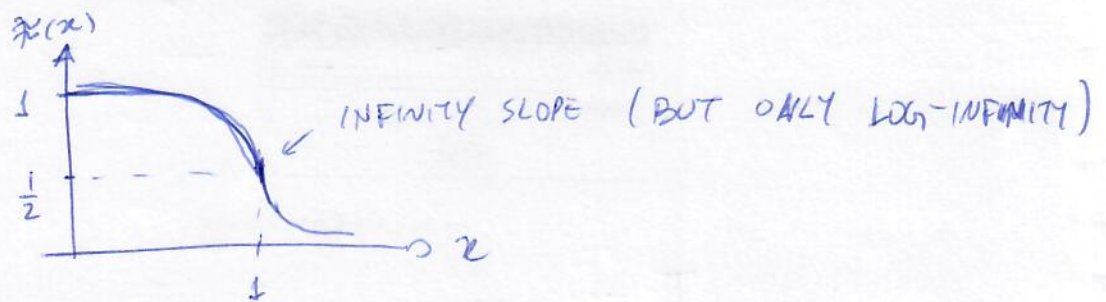 F(x)
1
INFINITY SLOPE (BUT ONLY LOG-INFINITY)
1/2
x
1